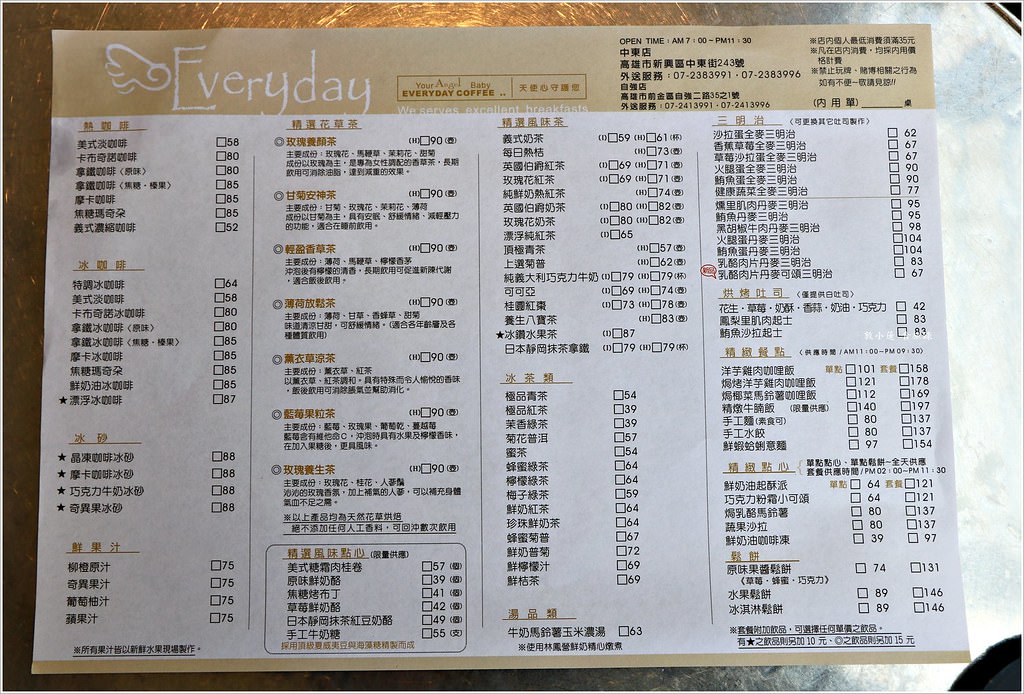 Everyday
Your Angel Baby
EVERYDAY COFFEE ..
天使心守護您
We serves excellent breakfasts
OPEN TIME：AM 7：00~PM11：30
中東店
高雄市新興區中東街243號
外送服務：07-2383991・07-2383996
自強店
高雄市前金區自強二路35之1號
外送服務：07-2413991・07-2413996
※店內個人最低消費須滿35元
※凡在店內消費，均採內用價格計費
※禁止玩牌、賭博相關之行為
如有不便~敬請見諒!!
(內用單)____桌
熱咖啡
美式淡咖啡 □58
卡布奇諾咖啡 □80
拿鐵咖啡〈原味〉 □80
拿鐵咖啡〈焦糖・榛果〉 □85
摩卡咖啡 □85
焦糖瑪奇朵 □85
義式濃縮咖啡 □52
冰咖啡
特調冰咖啡 □64
美式淡咖啡 □58
卡布奇諾冰咖啡 □80
拿鐵冰咖啡〈原味〉 □80
拿鐵冰咖啡〈焦糖・榛果〉 □85
摩卡冰咖啡 □85
焦糖瑪奇朵 □85
鮮奶油冰咖啡 □85
★漂浮冰咖啡 □87
冰砂
★晶凍咖啡冰砂 □88
★摩卡咖啡冰砂 □88
★巧克力牛奶冰砂 □88
★奇異果冰砂 □88
鮮果汁
柳橙原汁 □75
奇異果汁 □75
葡萄柚汁 □75
蘋果汁 □75
※所有果汁皆以新鮮水果現場製作。
精選花草茶
◎玫瑰養顏茶 (H)□90(壺)
主要成份：玫瑰花、馬鞭草、茉莉花、甜菊
成份以玫瑰為主，是專為女性調配的香草茶，長期
飲用可消除油脂，達到減重的效果。
◎甘菊安神茶 (H)□90(壺)
主要成份：甘菊、玫瑰花、茉莉花、薄荷
成份以甘菊為主，具有安眠、舒緩情緒、減輕壓力
的功能，適合在睡前飲用。
◎輕盈香草茶 (H)□90(壺)
主要成份：薄荷、馬鞭草、檸檬香茅
沖泡後有檸檬的清香，長期飲用可促進新陳代謝
，適合飯後飲用。
◎薄荷放鬆茶 (H)□90(壺)
主要成份：薄荷、甘草、香蜂草、甜菊
味道清涼甘甜，可舒緩情緒。(適合各年齡層及各
種體質飲用)
◎薰衣草涼茶 (H)□90(壺)
主要成份：薰衣草、紅茶
以薰衣草、紅茶調和。具有特殊而令人愉悅的香味
，飯後飲用可消除脹氣並幫助消化。
◎藍莓果粒茶 (H)□90(壺)
主要成份：藍莓、玫瑰果、葡萄乾、蔓越莓
藍莓含有維他命C，沖泡時具有水果及檸檬香味，
在加入果糖後，更具風味。
◎玫瑰養生茶 (H)□90(壺)
主要成份：玫瑰花、桂花、人蔘鬚
沁沁的玫瑰香氣，加上補氣的人蔘，可以補充身體
氣血不足之需。
※以上產品均為天然花草烘焙
絕不添加任何人工香料，可回沖數次飲用
精選風味點心(限量供應)
美式糖霜肉桂卷 □57(個)
原味鮮奶酪 □39(個)
焦糖烤布丁 □41(個)
草莓鮮奶酪 □42(個)
日本靜岡抹茶紅豆奶酪 □49(個)
手工牛奶糖 □55(支)
採用頂級夏威夷豆與海藻糖精製而成
精選風味茶
義式奶茶 (I)□59 (H)□61(杯)
每日熱桔 (H)□73(壺)
英國伯爵紅茶 (I)□69 (H)□71(壺)
玫瑰花紅茶 (I)□69 (H)□71(壺)
純鮮奶熱紅茶 (H)□74(壺)
英國伯爵奶茶 (I)□80 (H)□82(壺)
玫瑰花奶茶 (I)□80 (H)□82(壺)
漂浮純紅茶 (I)□65
頂極青茶 (H)□57(壺)
上選菊普 (H)□62(壺)
純義大利巧克力牛奶 (I)□79 (H)□79(杯)
可可亞 (I)□69 (H)□74(壺)
桂圓紅棗 (I)□73 (H)□78(壺)
養生八寶茶 (H)□83(壺)
★冰鑽水果茶 (I)□87
日本靜岡抹茶拿鐵 (I)□79 (H)□79(杯)
冰茶類
極品青茶 □54
極品紅茶 □39
茉香綠茶 □39
菊花普洱 □57
蜜茶 □54
蜂蜜綠茶 □64
檸檬綠茶 □64
梅子綠茶 □59
鮮奶紅茶 □64
珍珠鮮奶茶 □64
蜂蜜菊普 □67
鮮奶普菊 □72
鮮檸檬汁 □69
鮮桔茶 □69
湯品類
牛奶馬鈴薯玉米濃湯 □63
※使用林鳳營鮮奶精心燉煮
三明治(可更換其它吐司製作)
沙拉蛋全麥三明治 □62
香蕉草莓全麥三明治 □67
草莓沙拉蛋三明治 □67
火腿蛋全麥三明治 □90
鮪魚蛋全麥三明治 □90
健康蔬菜全麥三明治 □77
燻里肌肉丹麥三明治 □95
鮪魚丹麥三明治 □95
黑胡椒牛肉丹麥三明治 □98
火腿蛋丹麥三明治 □104
鮪魚蛋丹麥三明治 □104
乳酪肉片丹麥三明治 □83
乳酪肉片丹麥可頌三明治 □67
烘烤吐司(僅提供白吐司)
花生・草莓・奶酥・香蒜・奶油・巧克力 □42
鳳梨里肌肉起士 □83
鮪魚沙拉起士 □83
精緻餐點(供應時間/AM11:00~PM09:30)
洋芋雞肉咖哩飯 單點□101 套餐□158
焗烤洋芋雞肉咖哩飯 □121 □178
焗椰菜馬鈴薯咖哩飯 □112 □169
精燉牛腩飯 (限量供應) □140 □197
手工麵(素食可) □80 □137
手工水餃 □80 □137
鮮蝦蛤蜊意麵 □97 □154
精緻點心
單點點心、單點鬆餅~全天供應
套餐供應時間/PM02:00~PM11:30
鮮奶油起酥派 單點□64 套餐□121
巧克力粉霜小可頌 □64 □121
焗乳酪馬鈴薯 □80 □137
蔬果沙拉 □80 □137
鮮奶油咖啡凍 □39 □97
鬆餅
原味果醬鬆餅 □74 □131
《草莓・蜂蜜・巧克力》
水果鬆餅 □89 □146
冰淇淋鬆餅 □89 □146
※套餐附加飲品，可選擇任何單價之飲品。
有★之飲品則另加10元、◎之飲品則另加15元